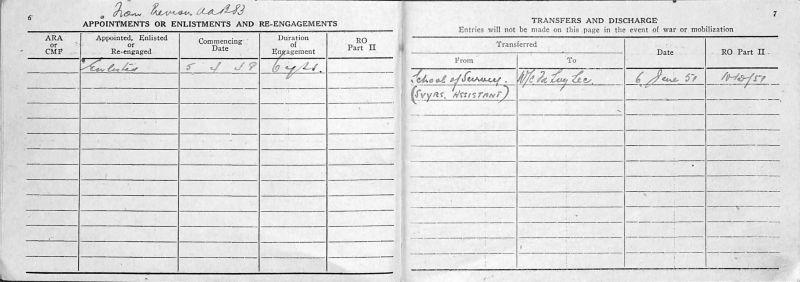 6
From Previous AAB 83
APPOINTMENTS OR ENLISTMENTS AND RE-ENGAGEMENTS
ARA or CMF
Appointed, Enlisted or Re-engaged
Commencing Date
Duration of Engagement
RO Part II
Enlisted 5 6 yrs.
7
TRANSFERS AND DISCHARGE
Entries will not be made on this page in the event of war or mobilization
Transferred
From
To
Date
RO Part II
School of Survey. 6 June 51
(SVYRS. ASSISTANT)